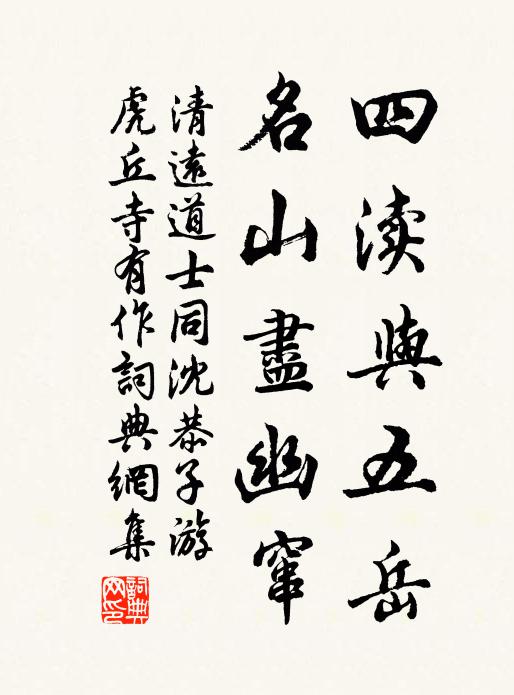 四渎與五岳
名山盡幽竄
清遠道士同沈恭子游
虎丘寺有作詞典網集
詞典网印